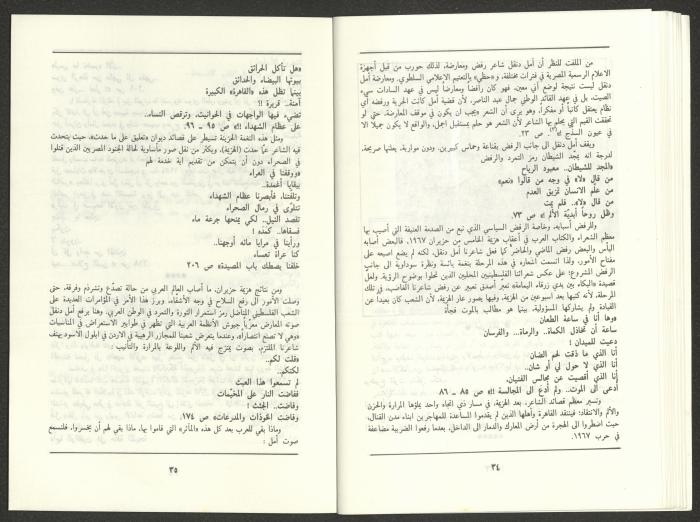 من الملفت للنظر أن أمل دنقل شاعر رفض ومعارضة، لذلك حورب من قبل أجهزة
الاعلام الرسمية المصرية في فترات مختلفة، و«حظي» بالتعتيم الإعلامي السلطوي. ومعارضة أمل
دنقل ليست نتيجة لوضع آني معين، فهو كان رافضاً ومعارضاً ليس في عهد السادات سيء
الصيت، بل في عهد القائد الوطني جمال عبد الناصر، لأن قضية أمل كانت الحرية ورفضه أي
نظام يعتقل كاتباً أو مفكراً، وهو يرى أن الشعر «يجب ان يكون في موقف المعارضة. حتى لو
تحققت القيم التي يحلم بها الشاعر لأن الشعر هو حلم بمستقبل اجمل، والواقع لا يكون جميلا الا
في عيون السذج»(٣). ص ٢٣.
يقف أمل دنقل الى جانب الرفض بقناعة وحماس كبيرين، ودون مواربة، يعلنها صريحة،
لدرجة انه يمجّد الشيطان رمز التمرد والرفض
«المجد للشيطان.. معبود الرياح
من قال «لا» في وجه من قالوا «نعم»
من علّم الانسان تمزيق العدم
من قال «لا».. فلم يمت
وظل روحاً أبديّة الألم !» ص ٧٣.
وللرفض أسبابه، وخاصة الرفض السياسي الذي نبع من الصدمة العنيفة التي أصيب بها
معظم الشعراء والكتاب العرب في أعقاب هزيمة الخامس من حزيران ١٩٦٧، فالبعض أصابه
اليأس والبعض رفض الماضي والحاضر كما فعل شاعرنا أمل دنقل، لكنه لم يضع اصبعه على
مفتاح الأمور، ولذا اتسمت اشعاره في هذه المرحلة بنغمة يائسة ونظرة سوداوية الى جانب
الرفض المشروع؛ على عكس شعرائنا الفلسطينيين المحليين الذين تحلوا بوضوح الرؤية. ولعل
قصيدة «البكاء بين يدي زرقاء اليمامة» تعبّر أصدق تعبير عن رفض شاعرنا الغاضب، في تلك
المرحلة، لأنه كتبها بعد اسبوعين من الهزيمة، وفيها يصور عار الهزيمة، لأن الشعب كان بعيداً عن
القيادة ولم يشاركها المسؤولية، بينما هو مطالب بالموت فجأة
«وها أنا في ساعة الطعان
ساعة أن تخاذل الكماة.. والرماة.. والفرسان
دعيت للميدان !
أنا الذي ما ذقت لحم الضان
أنا الذي لا حول لي أو شان..
أنا الذي أقصيت عن مجالس الفتيان،
أدعى الى الموت.. ولم أدع الى المجالسة !!» ص ٨٥ ـ ٨٦
وتسير معظم قصائد الشاعر، بعد الهزيمة، في مسار ذي اتجاه واحد يملؤها المرارة والحزن
والألم والانتقاد؛ فينتقد القاهرة وأهلها الذين لم يقدموا المساعدة للمهاجرين ابناء مدن القتال،
حيث اضطروا الى الهجرة من أرض المعارك والدمار الى الداخل، بعدما رفعوا الضريبة مضاعفة
في حرب ١٩٦٧.
٣٤
«هل تأكل الحرائق
بيوتها البيضاء والحدائق
بينما تظل هذه «القاهرة» الكبيرة
آمنة.. قريرة !!
تضيء فيها الواجهات في الحوانيت، وترقص النساء..
على عظام الشهداء !!» ص ٩٥ ـ ٩٦.
ومثل هذه النغمة الحزينة تسيطر على قصائد ديوان «تعليق على ما حدث»، حيث يتحدث
فيه الشاعر عمّا حدث (الهزيمة)، ويكثر من نقل صور مأساوية لحالة الجنود المصريين الذين قتلوا
في الصحراء دون أن يتمكن من تقديم اية خدمة لهم
«ووقفنا في العراء
ببقايا أغمدة..
وتلفتنا، فأبصرنا عظام الشهداء
تتلوّى في رمال الصحراء
تقصد النيل.. لكي يمنحها جرعة ماء
فسقاها.. كمَدَه !
ورأينا في مرايا مائه أوجهنا..
كنا عراة تعساء
خلفنا يصطك باب المصيدة» ص ٢٠٦
ومن نتائج هزيمة حزيران، ما أصاب العالم العربي من حالة تصدّع وتشرذم وفرقة، حتى
وصلت الأمور الى رفع السلاح في وجه الأشقاء، وبرز هذا الأمر في المؤامرات العديدة على
الشعب الفلسطيني المناضل رمز استمرار الثورة والتمرد في الوطن العربي. وهنا يرفع أمل دنقل
صوته المعارض معرّياً جيوش الأنظمة العربية التي تظهر في طوابير الاستعراض في المناسبات
«وهي لا تصنع انتصارا»، وعندما يتعرض شعبنا للمجازر الرهيبة في الاردن في ايلول الاسود يهتف
شاعرنا الملتزم، بصوت يمتزج فيه الألم واللوعة بالمرارة والتأنيب :
«قلت لكم..
لكنكم..
لم تسمعوا هذا العبث
ففاضت النار على المخيّمات
وفاضت.. الجثث !
وفاضت الخوذات والمدرعات» ص ١٧٤.
وماذا بقي للعرب بعد كل هذه «المآثر» التي قاموا بها، ماذا بقي لهم أن يخسروا، فلنسمع
صوت أمل :
٣٥